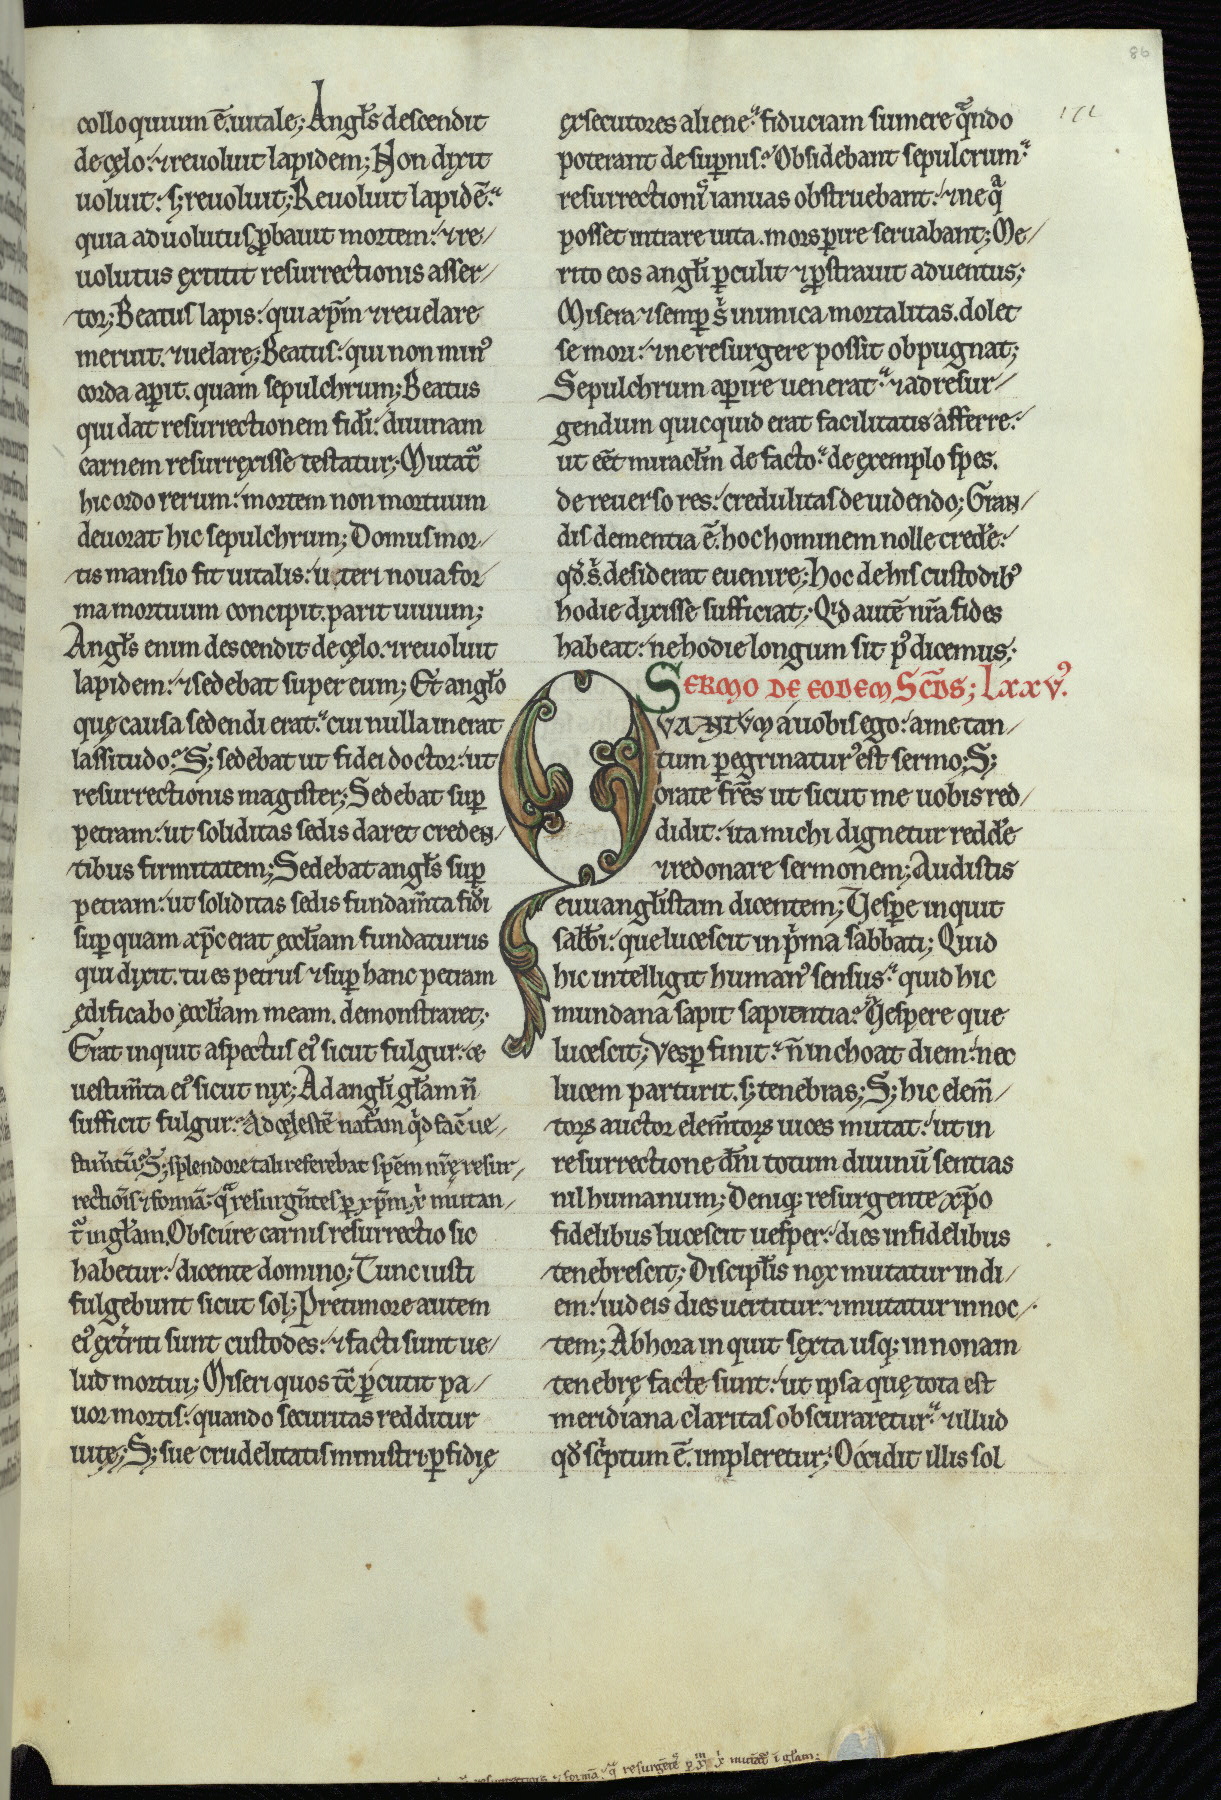 86
171
colloquium ē. uitale; Angłs descendit
de cęlo: ⁊ reuoluit lapidem; Non dixit
uoluit: s; reuoluit; Reuoluit lapidē:
quia aduolutus ꝓbauit mortem: ⁊ re/
uolutus extitit resurrectionis asser/
tor; Beatus lapis: qui xp̄m ⁊ reuelare
meruit. ⁊ uelare; Beatus: qui non minꝰ
corda aꝑit. quam sepulchrum; Beatus
qui dat resurrectionem fidi: diuinam
carnem resurrexisse testatur; Mutat᷑
hic ordo rerum: mortem non mortuum
deuorat hic sepulchrum; Domus mor/
tis mansio fit uitalis: uteri noua for/
ma mortuum concipit. parit uiuum;
Angłs enim descendit de cęlo. ⁊ reuoluit
lapidem: ⁊ sedebat super eum; Et angło
que causa sedendi erat: cui nulla inerat
lassitudo? S; sedebat ut fidei doctor: ut
resurrectionis magister; Sedebat suꝑ
petram: ut soliditas sedis daret creden/
tibus firmitatem; Sedebat angłs suꝑ
petram: ut soliditas sedis fundam̄ta fidi
suꝑ quam xp̄c erat ęccłiam fundaturus
qui dixit. tu es petrus ⁊ suꝑ hanc petram
ędificabo ęccłiam meam. demonstraret;
Erat inquit aspectus eiꝰ sicut fulgur: &
uestim̄ta eiꝰ sicut nix; Ad angłi głam n̄
sufficit fulgur? Ad cęlestē nat᷑am qd̄ fac̄ ue/
stim̄tū? S; splendore tali referebat spēm nr̄ę resur/
rectiōis ⁊ formā: qa resurgn̄tes ꝑ xp̄m ⁊ mutan/
t᷑ in głam. Obscure carnis resurrectio sic
habetur: dicente domino; Tunc iusti
fulgebunt sicut sol; Pre timore autem
eiꝰ ext̾riti sunt custodes: ⁊ facti sunt ue/
lud mortui; Miseri quos tc̄ ꝑcutit pa/
uor mortis: quando securitas redditur
uitę; S; sue crudelitatis ministri ꝑfidię
exsecutores aliene: fiduciam sumere qn̄do
poterant de suꝑnis? Obsidebant sepulcrum:
resurrectionis ianuas obstruebant: ⁊ ne qa
posset intrare uita. mors ꝑire seruabant; Me/
rito eos angłi ꝑculit ⁊ ꝓstrauit aduentus;
Misera ⁊ semꝑ s̄ inimica mortalitas. dolet
se mori: ⁊ ne resurgere possit obpugnat;
Sepulchrum aꝑire uenerat: ⁊ ad resur/
gendum quicquid erat facilitatis afferre:
ut eēt miracłm de facto: de exemplo spes.
de reuerso res: credulitas de uidendo; Gran/
dis dementia ē. hoc hominem nolle cred̄e:
qd̄. s̄. desiderat euenire; Hoc de his custodibꝰ
hodie dixisse sufficiat; Qd autē nr̄a fides
habeat: ne hodie longum sit pꝰ dicemus;
Sermo de eodem Sc̄ds; Lxxvꝰ.
QVANTVM a uobis ego: a me tan/
tum ꝑegrinaturꝰ est sermo; S;
orate fr̄es ut sicut me uobis red/
didit: ita michi dignetur redd̄e
⁊ redonare sermonem; Audistis
euuangłistam dicentem; Vesꝑe inquit
sabb̄i: que lucescit in pͥma sabbati; Quid
hic intelligit humanꝰ sensus: quid hic
mundana sapit sapientia? Vespere que
lucescit; Vesꝑ finit: n̄ inchoat diem: nec
lucem parturit. s; tenebras; S; hic elem̄/
toꝝ auctor elem̄toꝝ uices mutat: ut in
resurrectione dn̄i totum diuinū sentias
nil humanum; Deniq; resurgente xp̄o
fidelibus lucescit uesper: dies infidelibus
tenebrescit; Discipłis nox mutatur in di/
em: iudeis dies uertitur. ⁊ mutatur in noc/
tem; Ab hora inquit sexta usq; in nonam
tenebrę facte sunt: ut ipsa quę tota est
meridiana claritas obscuraretur: ⁊ illud
qd̄ sc̾ptum ē. impleretur; Occidit illis sol
resurrectionis ⁊ formā: qa resurgētes ꝑ xp̄m ⁊ mutāt᷑ ī głam: